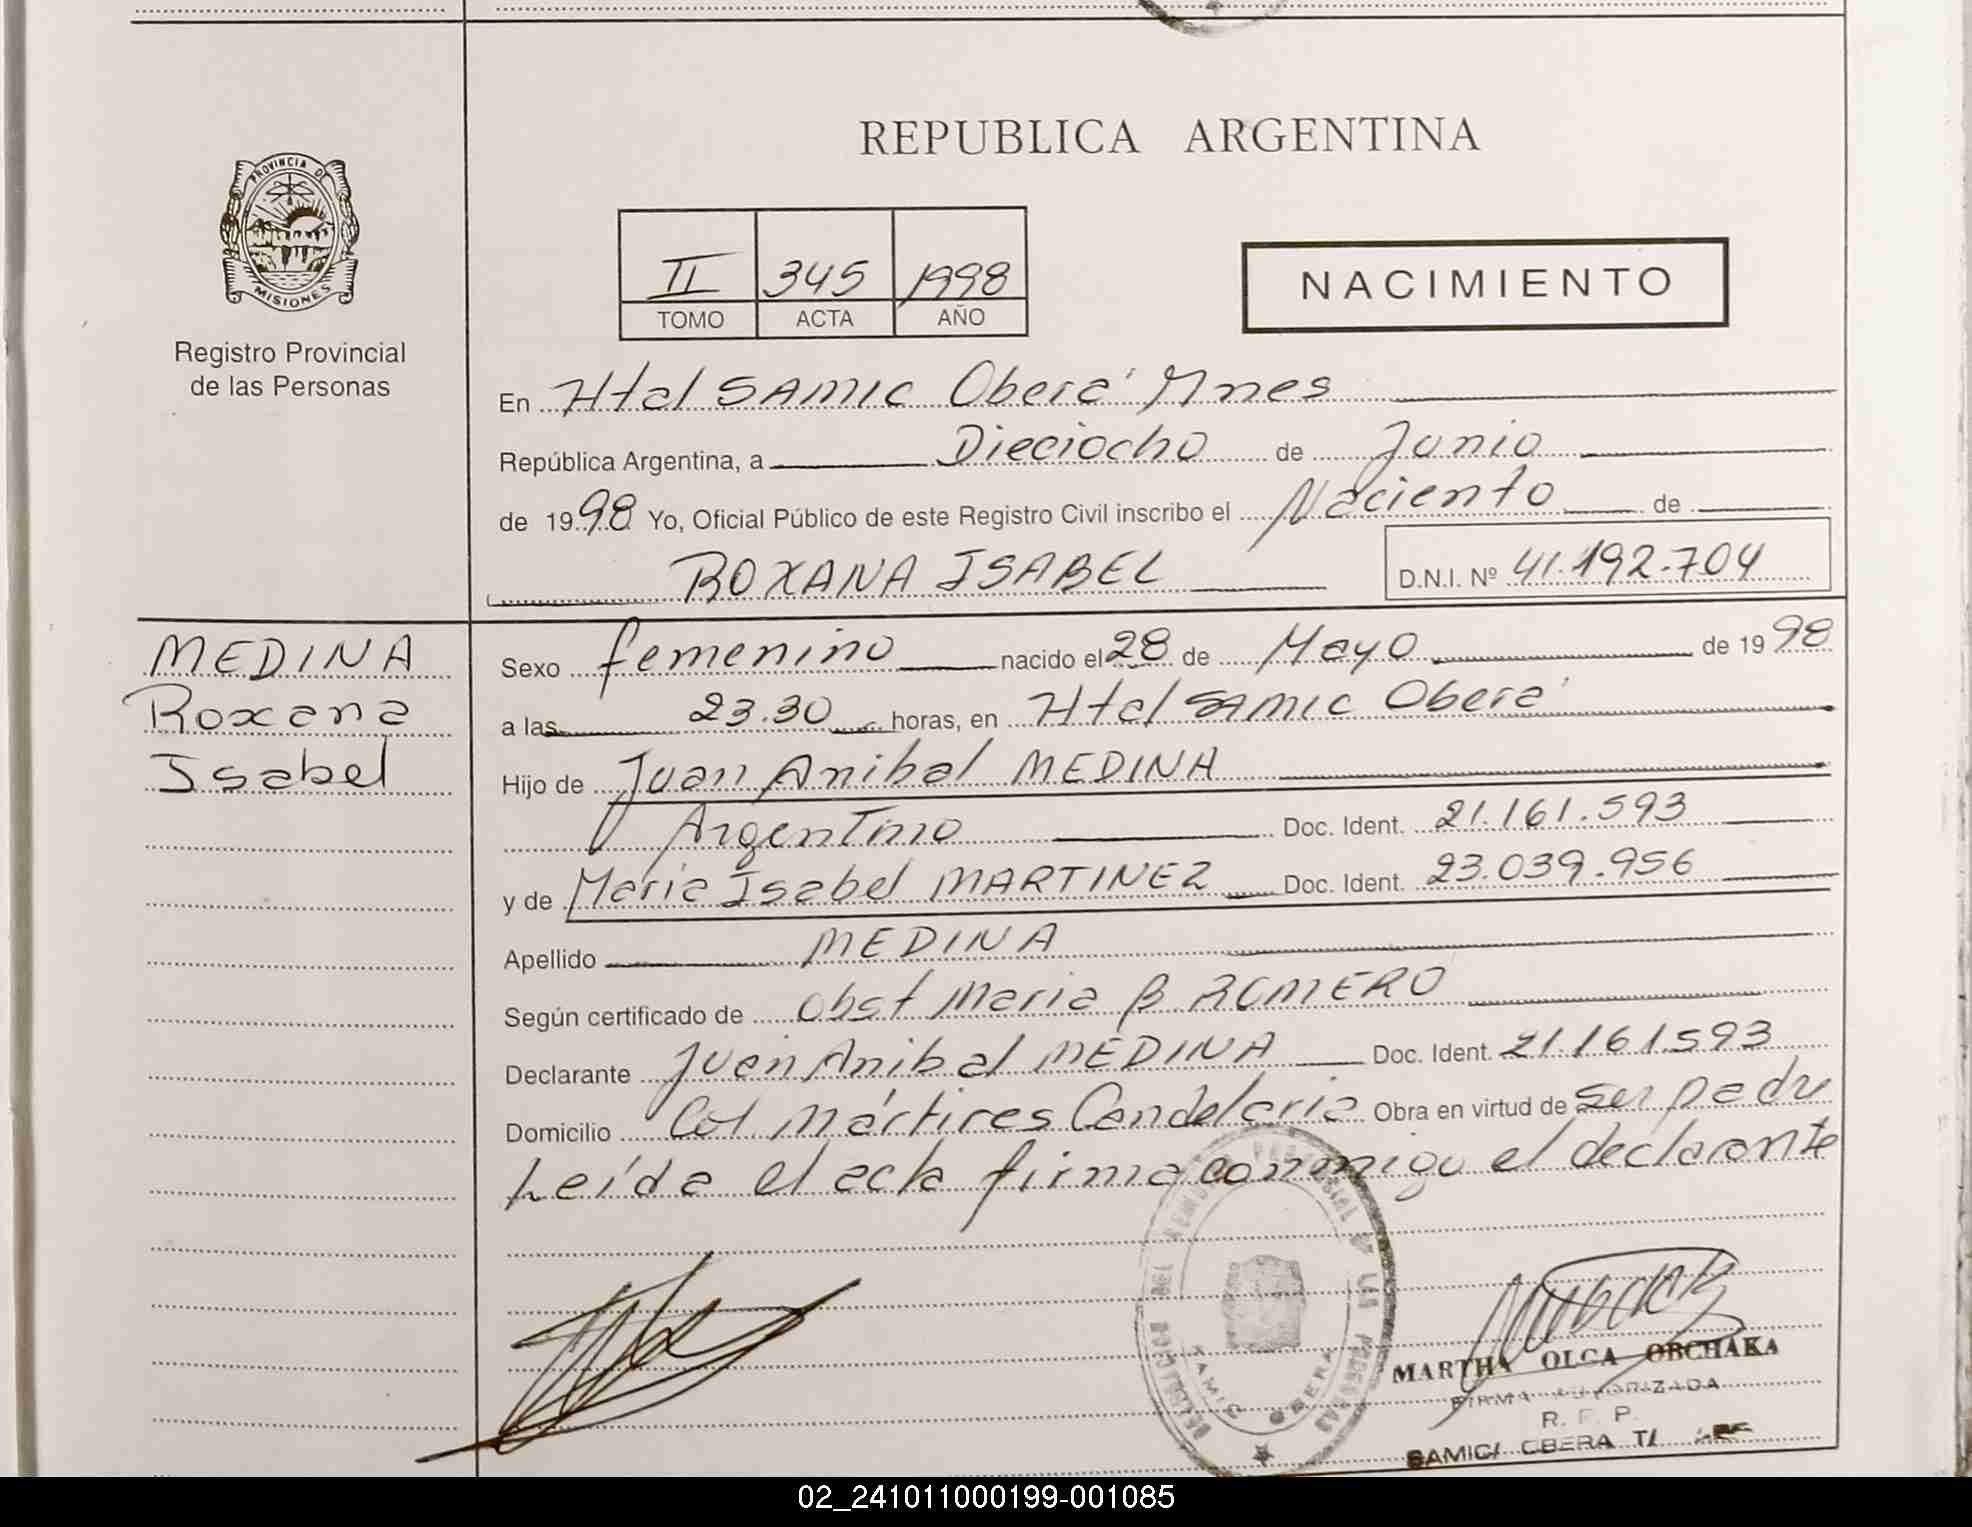 REPUBLICA ARGENTINA
PROVINCIA D
MISIONES
Registro Provincial
de las Personas
II 345 1998
TOMO ACTA AÑO
NACIMIENTO
En Htal SAMIC Oberá Mnes
República Argentina, a Dieciocho de Junio
de 1998 Yo, Oficial Público de este Registro Civil inscribo el Naciento de
ROXANA ISABEL D.N.I. Nº 41.192.704
MEDINA
Roxana
Isabel
Sexo femenino nacido el 28 de Mayo de 1998
a las 23.30 horas, en Htal SAMIC Oberá
Hijo de Juan Anibal MEDINA
Argentino Doc. Ident. 21.161.593
y de Maria Isabel MARTINEZ Doc. Ident. 23.039.956
Apellido MEDINA
Según certificado de Obst Maria B ROMERO
Declarante Juan Anibal MEDINA Doc. Ident. 21.161.593
Domicilio Col Mártires Candelaria Obra en virtud de ser padre
Leída el acta firma conmigo el declarante
SAMIC OBERA
MARTHA OLGA OBCHAKA
FIRMA AUTORIZADA
R. P. P.
SAMIC/ OBERA
02_241011000199-001085